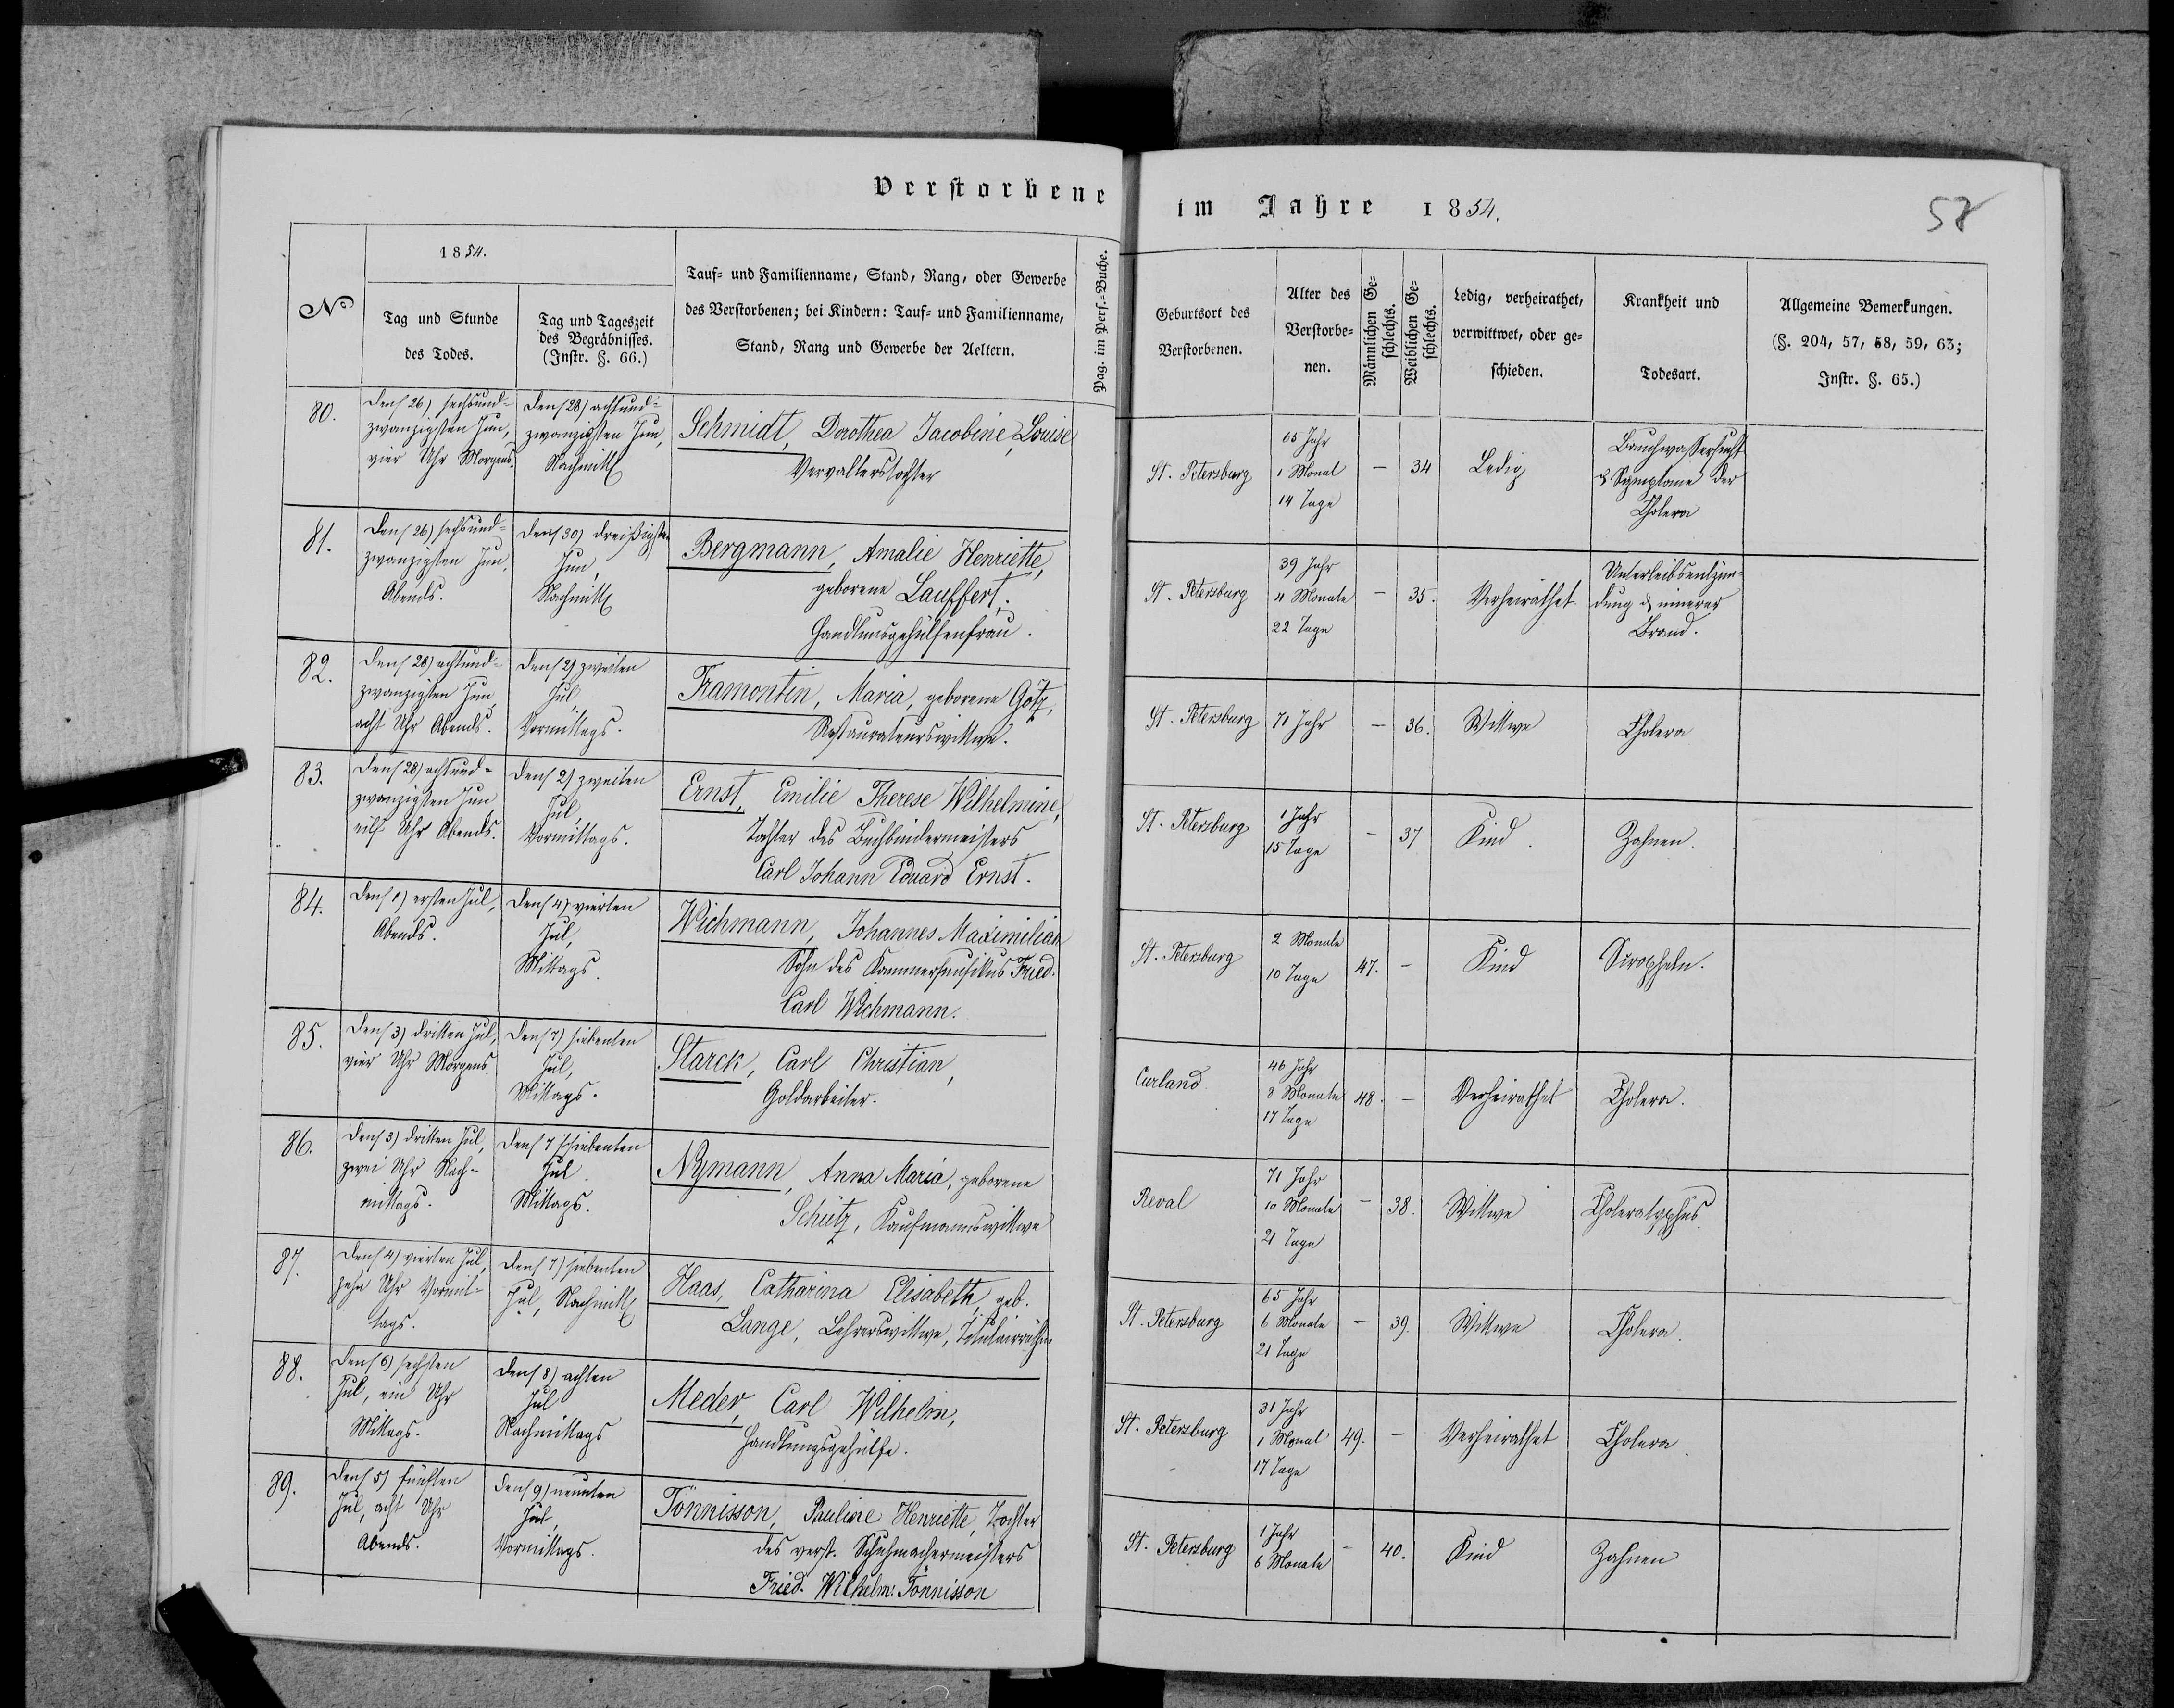 Verstorbene im Jahre 1854.
58
No
1854.
Tag und Stunde
des Todes.
Tag und Tageszeit
des Begräbnisses.
(Instr. §. 66.)
Tauf- und Familienname, Stand, Rang, oder Gewerbe
des Verstorbenen; bei Kindern: Tauf- und Familienname,
Stand, Rang und Gewerbe der Aeltern.
Pag. im Pers.-Buche.
Geburtsort des
Verstorbenen.
Alter des
Verstorbe-
nen.
Männlichen Ge-
schlechts.
Weiblichen Ge-
schlechts.
Ledig, verheirathet,
verwittwet, oder ge-
schieden.
Krankheit und
Todesart.
Allgemeine Bemerkungen.
(§. 204, 57, 58, 59, 63;
Instr. §. 65.)
80.
Den (26) sechsund-
zwanzigsten Jun,
vier Uhr Morgens.
Den (28) achtund-
zwanzigsten Jun,
Nachmitt
Schmidt, Dorothea Jacobine Louise
Verwalterstochter
St. Petersburg
65 Jahr
1 Monat
14 Tage
–
34
Ledig
Bauchwassersucht
& Symptome der
Cholera
81.
Den (26) sechsund-
zwanzigsten Jun,
Abends.
Den (30) dreißigsten
Jun,
Nachmitt
Bergmann, Amalie Henriette,
geborene Lauffert,
Handlungsgehülfenfrau.
St. Petersburg
39 Jahr
4 Monate
22 Tage
–
35.
Verheirathet
Unterleibsentzün-
dung & innerer
Brand.
82.
Den (28) achtund-
zwanzigsten Jun,
acht Uhr Abends.
Den (2) zweiten
Jul,
Vormittags.
Tramontin, Maria, geborene Götz,
Restaurateurswittwe.
St. Petersburg
71 Jahr
–
36.
Wittwe
Cholera
83.
Den (28) achtund-
zwanzigsten Jun
eilf Uhr Abends.
Den (2) zweiten
Jul,
Vormittags.
Ernst, Emilie Therese Wilhelmine,
Tochter des Buchbindermeisters
Carl Johann Eduard Ernst.
St. Petersburg
1 Jahr
15 Tage
–
37
Kind.
Zahnen.
84.
Den (1) ersten Jul,
Abends.
Den (4) vierten
Jul,
Mittags.
Wichmann, Johannes Maximilian
Sohn des Kammermusikus Fried.
Carl Wichmann.
St. Petersburg
2 Monate
10 Tage
47.
–
Kind
85.
Den (3) dritten Jul,
vier Uhr Morgens.
Den (7) siebenten
Jul,
Mittags.
Starck, Carl Christian,
Goldarbeiter.
Curland
46 Jahr
8 Monate
17 Tage
48.
–
Verheirathet
Cholera.
86.
Den (3) dritten Jul,
zwei Uhr Nach-
mittags.
Den (7) siebenten
Jul.
Mittags.
Nymann, Anna Maria, geborene
Schütz, Kaufmannswittwe
Reval
71 Jahr
10 Monate
21 Tage
–
38.
Wittwe
Choleratyphus.
87.
Den (4) vierten Jul,
zehn Uhr Vormit-
tags.
Den (7) siebenten
Jul, Nachmitt
Haas, Catharina Elisabeth, geb.
Lange, Lehrerswittwe, Titulairräthin
St. Petersburg
65 Jahr
6 Monate
21 Tage
–
39.
Wittwe
Cholera.
88.
Den (6) sechsten
Jul, ein Uhr
Mittags.
Den (8) achten
Jul
Nachmittags
Meder, Carl Wilhelm,
Handlungsgehülfe.
St. Petersburg
31 Jahr
1 Monat
17 Tage
49.
–
Verheirathet
Cholera.
89.
Den (5) fünften
Jul, acht Uhr
Abends.
Den (9) neunten
Jul,
Vormittags.
Tönnisson, Pauline Henriette, Tochter
des verst. Schuhmachermeisters
Fried. Wilhelm Tönnisson
St. Petersburg
1 Jahr
6 Monate
–
40.
Kind
Zahnen